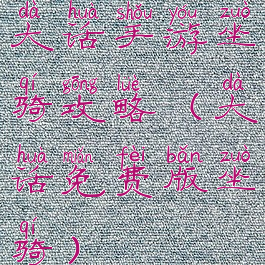 dà huà shǒu yóu zuò
大话手游坐
qí gōng lüè dà
骑攻略（大
huà miǎn fèi bǎn zuò
话免费版坐
qí
骑）